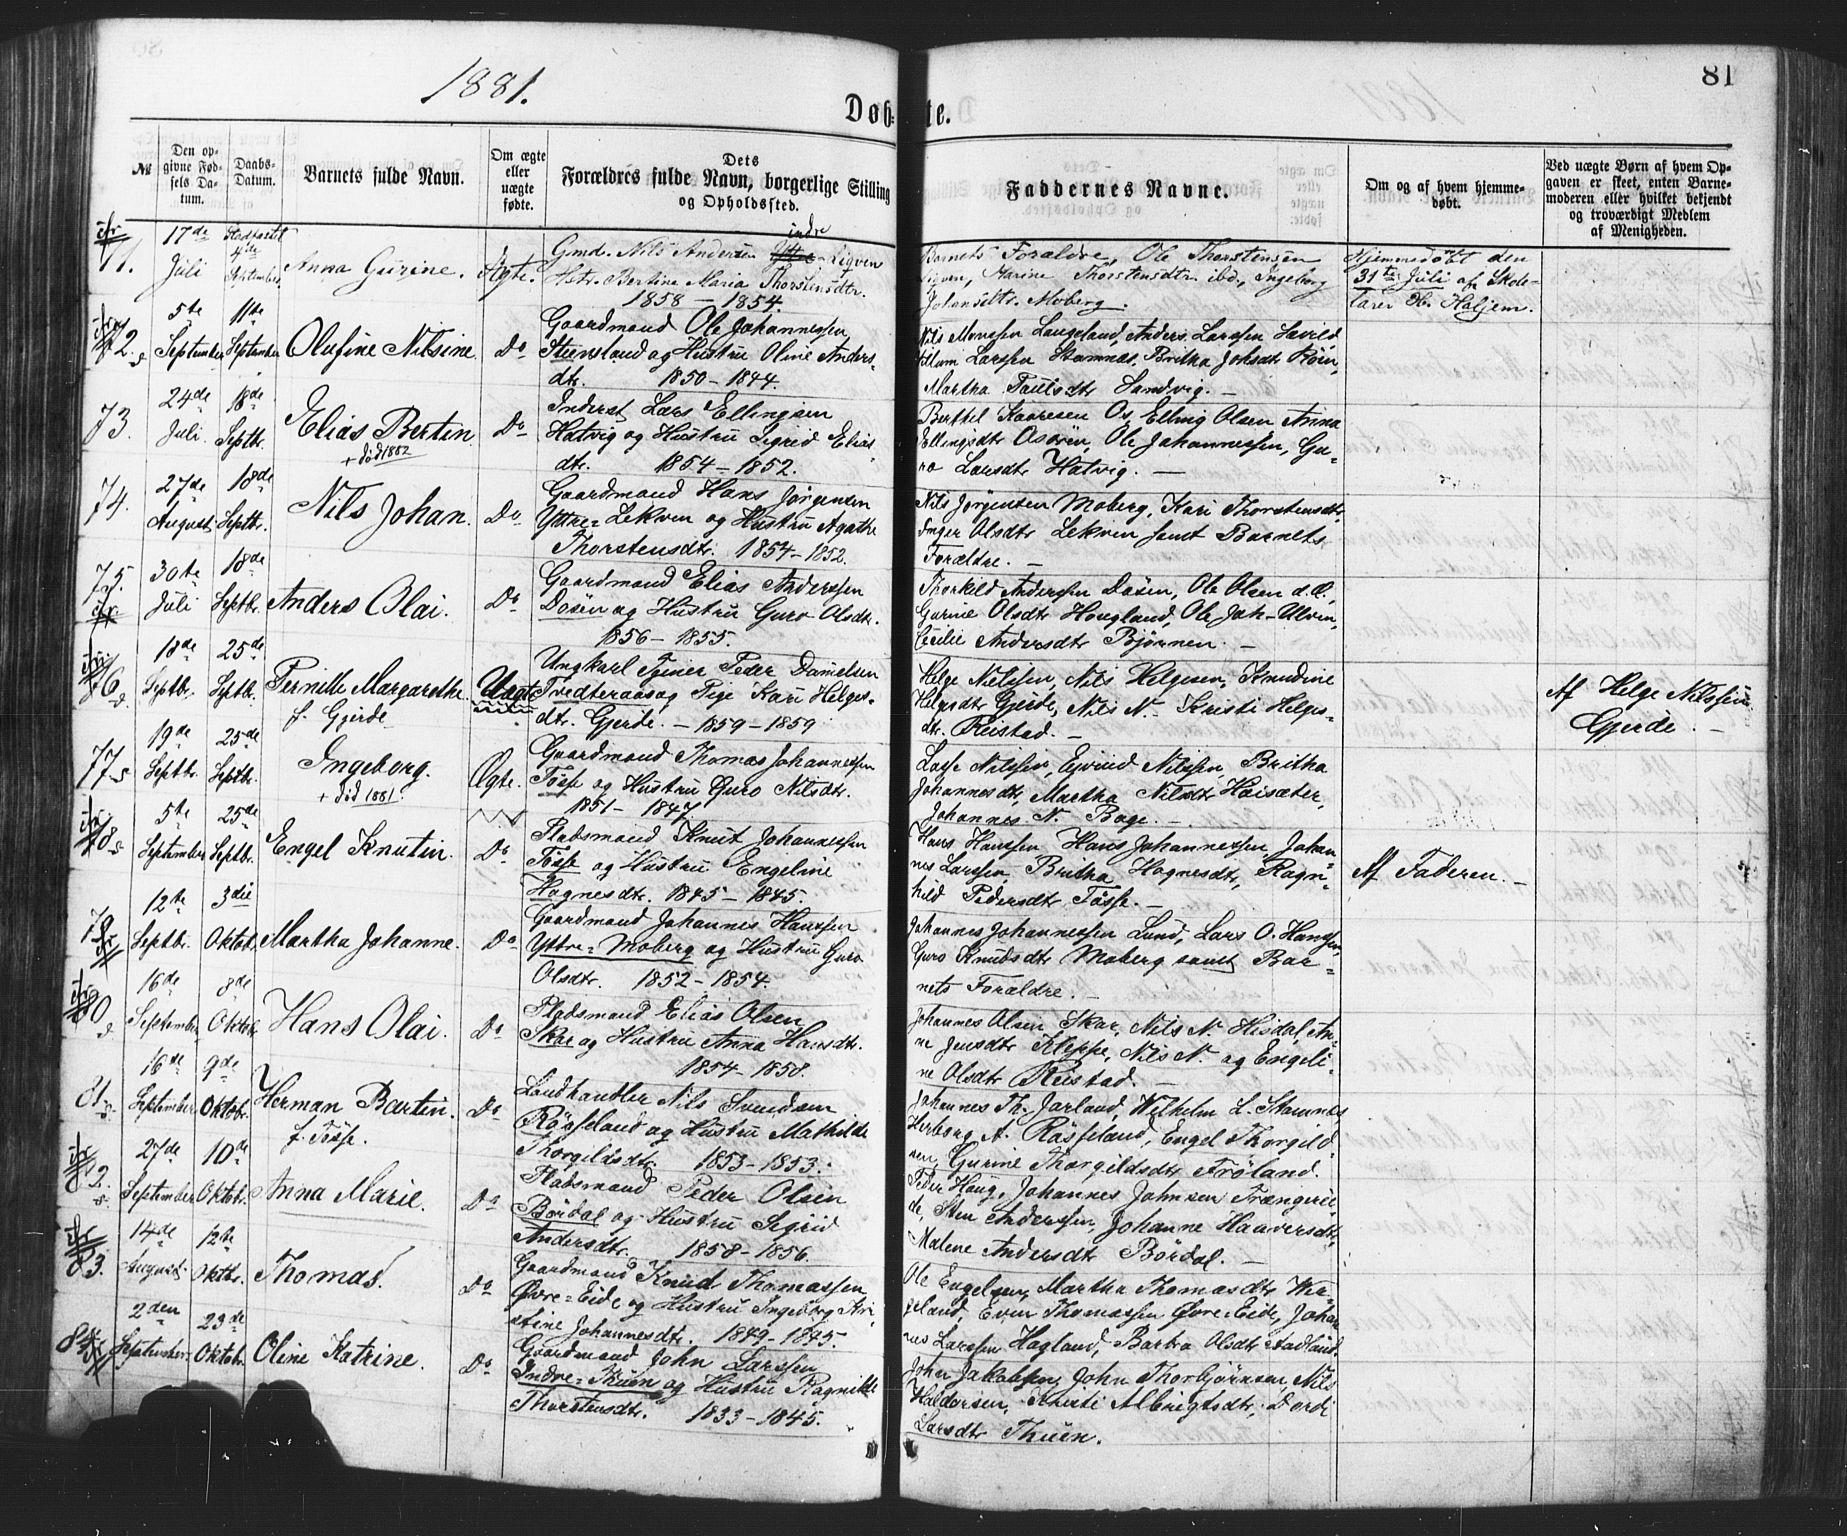 1881.
81
Døbte.
№
Den opgivne Fødsels Datum.
Daabs-Datum.
Barnets fulde Navn.
Om ægte eller uægte fødte.
Dets Forældres fulde Navn, borgerlige Stilling og Opholdssted.
Faddernes Navne.
Om og af hvem hjemmedøbt.
Ved uægte Børn af hvem Opgaven er skeet, enten Barnemoderen eller hvilket bekjendt og troværdigt Medlem af Menigheden.
71.
17de Juli
4de September
Anna Gurine.
Ægte.
indre
Gmd. Nils Andersen Ytre-Ligven
Hstr. Bertine Maria Thorstensdtr.
1858 - 1854.
Barnets Forældre, Ole Thorstensen
Ligven, Marine Thorstensdtr. ibd, Ingeborg
Johansdtr. Moberg.
Hjemmedøbt den
31te Juli af Skole-
lærer Haljem.
72. s
5te September
11te September
Olufine Nilsine.
Do
Gaardmand Ole Johannessen
Steensland og Hustru Oline Anders-
dtr. 1850 - 1844.
Nils Monssen Laugeland, Anders Larssen
Larssen Stamnæs, Britha Johsdtr
Martha Paulsdtr Sandvig. -
73.
24de Juli.
18de Septbr.
Elias Bertin
+ død 1882
Do
Inderst Lars Ellingsen
Hatvig og Hustru Sigrid Elias-
dtr. 1854 - 1852.
Berthel Kaaresen Os, Elling Olsen, Anna
Ellingsdtr Osøren, Ole Johannessen, Gu-
ro Larsdtr Hatvig. -
74.
27de August
18de Septbr.
Nils Johan.
Do
Gaardmand Hans Jørgensen
Yttre=Lekven og Hustru Agathe
Thorstensdtr. 1854 - 1852.
Nils Jørgensen Moberg, Kari Thorstensdtr,
Inger Olsdtr Lekven samt Barnets
Forældre. -
75.
30te Juli
18de Septbr.
Anders Olai.
Do
Gaardmand Elias Anderssen
Døsen og Hustru Guro Olsdtr.
1856 - 1855.
Thorkild Anderssen Døsen, Ole Olsen d. O.
Gurine Olsdtr Hougland, Ole Joh- Ulven,
Cecilie Andersdtr Bjørnen. -
76. d
18de Septbr.
25de Septbr.
Pernille Margarethe.
f. Gjerde
Uægte
Ungkarl Tjener Peder Danielsen
Tvedteraas og Pige Kari Helges-
dtr. Gjerde. - 1859 - 1859
Helge Nilssen, Nils Helgesen, Knudine
Helgesdtr Gjerde, Nils N. Kristi Helges-
dtr. Reistad. -
Af Helge Nilssen
Gjerde. -
77. s
19de Septbr.
25de Septbr.
Ingeborg.
+ død 1881.
Ægte.
Gaardmand Thomas Johannessen
Tøsse og Hustru Guro Nilsdtr.
1851 - 1847
Lasse Nilssen, Eivind Nilssen, Britha
Johannesdtr, Martha Nilsdtr Haisæter,
Johannes N. Boge. -
78. s
5te September
25de Septbr.
Engel Knutin.
Do
Pladsmand Knut Johannessen
Tøsse og Hustru Engeline
Hagnesdtr. 1845 - 1845.
Hans Hanssen, Hans Johannessen, Johan-
nes Larssen, Britha Hagnesdtr, Ragn-
hild Pedersdtr Tøsse. -
Af Faderen. -
79.
12te Septbr.
3die Oktob.
Martha Johanne.
Do
Gaardmand Johannes Hanssen
Yttre=Moberg og Hustru Guro
Olsdtr. 1852 - 1854.
Johannes Johannessen Lund, Lars O. Hanssen,
Guro Knudsdtr Moberg samt Bar-
nets Forældre. -
80. d
16de September
8de Oktob.
Hans Olai.
Do
Pladsmand Elias Olsen
Skar og Hustru Anna Hansdtr.
1854 - 1858.
Johannes Olsen Skar, Nils N. Hisdal, An-
ne Jensdtr Kleppe, Nils N. og Engeli-
ne Olsdtr Reistad. -
81. s
16de September
9de Oktobr.
Herman Bartin.
f. Tøsse.
Do
Landhandler Nils Svendsen
Røsseland og Hustru Mathilde
Thorgildsdtr. 1853 - 1853.
Johannes Th. Jarland, Wilhelm L. Stamnæs,
Herborg A. Røsseland, Engel Thorgild-
sen, Gurine Thorgildsdtr Frøland.
82. s.
27de September
10de Oktobr.
Anna Marie.
Do
Pladsmand Peder Olsen
Børdal og Hustru Sigrid
Andersdtr. 1858 - 1856.
Peder Haug, Johannes Johnsen Trængerei-
de, Sten Anderssen, Johanne Haaversdtr,
Malene Andersdtr Børdal. -
83.
14de August.
12te Oktbr.
Thomas.
Do
Gaardmand Knud Thomassen
Øvre=Eide og Hustru Ingeborg Kri-
stine Johannesdtr. 1849 - 1845.
Ole Engelsen, Martha Thomasdtr We-
geland, Even Thomassen Øvre-Eide, Johan-
nes Larssen Hagland, Barbra Olsdtr Aadland.
84.
2den September
23de Oktobr.
Oline Katrine.
Do
Gaardmand John Larssen
Indre=Thuen og Hustru Ragnilde
Thorstensdtr. 1833 - 1845.
John Jakobsen, John Thorbjørnsen, Nils
Haldorsen, Kristi Albrigtsdtr, Dordi
Larsdtr Thuen.